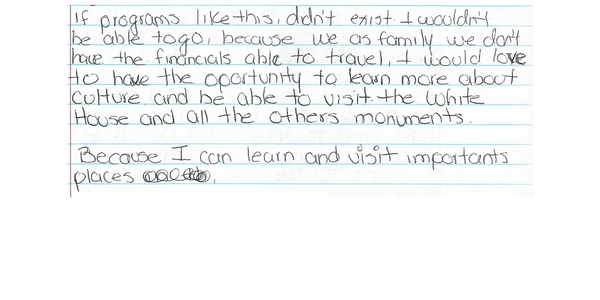 If programs like this, didn't exist I wouldn't
be able to go, because we as family we don't
have the financials able to travel, I would love
to have the oportunity to learn more about
culture and be able to visit the White
House and all the others monuments.
Because I can learn and visit importants
places